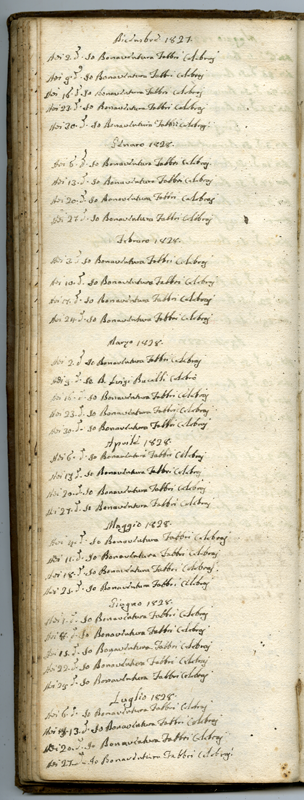 Dicembre 1827
Adi 2. d.º Io Bonaventura Fabbri Celebraj
Adi 9. d.º Io Bonaventura Fabbri Celebraj
Adi 16 d.º Io Bonaventura Fabbri Celebraj
Adi 23. d.º Io Bonaventura Fabbri Celebraj
Adi 30. d.º Io Bonaventura Fabbri Celebraj
1828.
Adi 6. d.º Io Bonaventura Fabbri Celebraj
Adi 13. d.º Io Bonaventura Fabbri Celebraj
Adi 20. d.º Io Bonaventura Fabbri Celebraj
Adi 27. d.º Io Bonaventura Fabbri Celebraj
Febraro 1828.
Adi 3. d.º Io Bonaventura Fabbri Celebraj
Adi 10. d.º Io Bonaventura Fabbri Celebraj
Adi 17. d.º Io Bonaventura Fabbri Celebraj
Adi 24. d.º Io Bonaventura Fabbri Celebraj
Marzo 1828.
Adi 2. d.º Io Bonaventura Fabbri Celebraj
Adi d.º Io D. Luigi
Adi 16. d.º Io Bonaventura Fabbri Celebraj
Adi 23. d.º Io Bonaventura Fabbri Celebraj
Adi 30. d.º Io Bonaventura Fabbri Celebraj
Aprile 1828.
Adi 6. d.º Io Bonaventura Fabbri Celebraj
Adi 13. d.º Io Bonaventura Fabbri Celebraj
Adi 20. d.º Io Bonaventura Fabbri Celebraj
Adi 27. d.º Io Bonaventura Fabbri Celebraj
Maggio 1828.
Adi 4. d.º Io Bonaventura Fabbri Celebraj
Adi 11. d.º Io Bonaventura Fabbri Celebraj
Adi 18. d.º Io Bonaventura Fabbri Celebraj
Adi 25. d.º Io Bonaventura Fabbri Celebraj
Giugno 1828.
Adi 1. d.º Io Bonaventura Fabbri Celebraj
Adi 8. d.º Io Bonaventura Fabbri Celebraj
Adi 15. d.º Io Bonaventura Fabbri Celebraj
Adi 22. d.º Io Bonaventura Fabbri Celebraj
Adi 29. d.º Io Bonaventura Fabbri Celebraj
Luglio 1828.
Adi 6. d.º Io Bonaventura Fabbri Celebraj
Adi 13. d.º Io Bonaventura Fabbri Celebraj
Adi 20. d.º Io Bonaventura Fabbri Celebraj
Adi 27. d.º Io Bonaventura Fabbri Celebraj